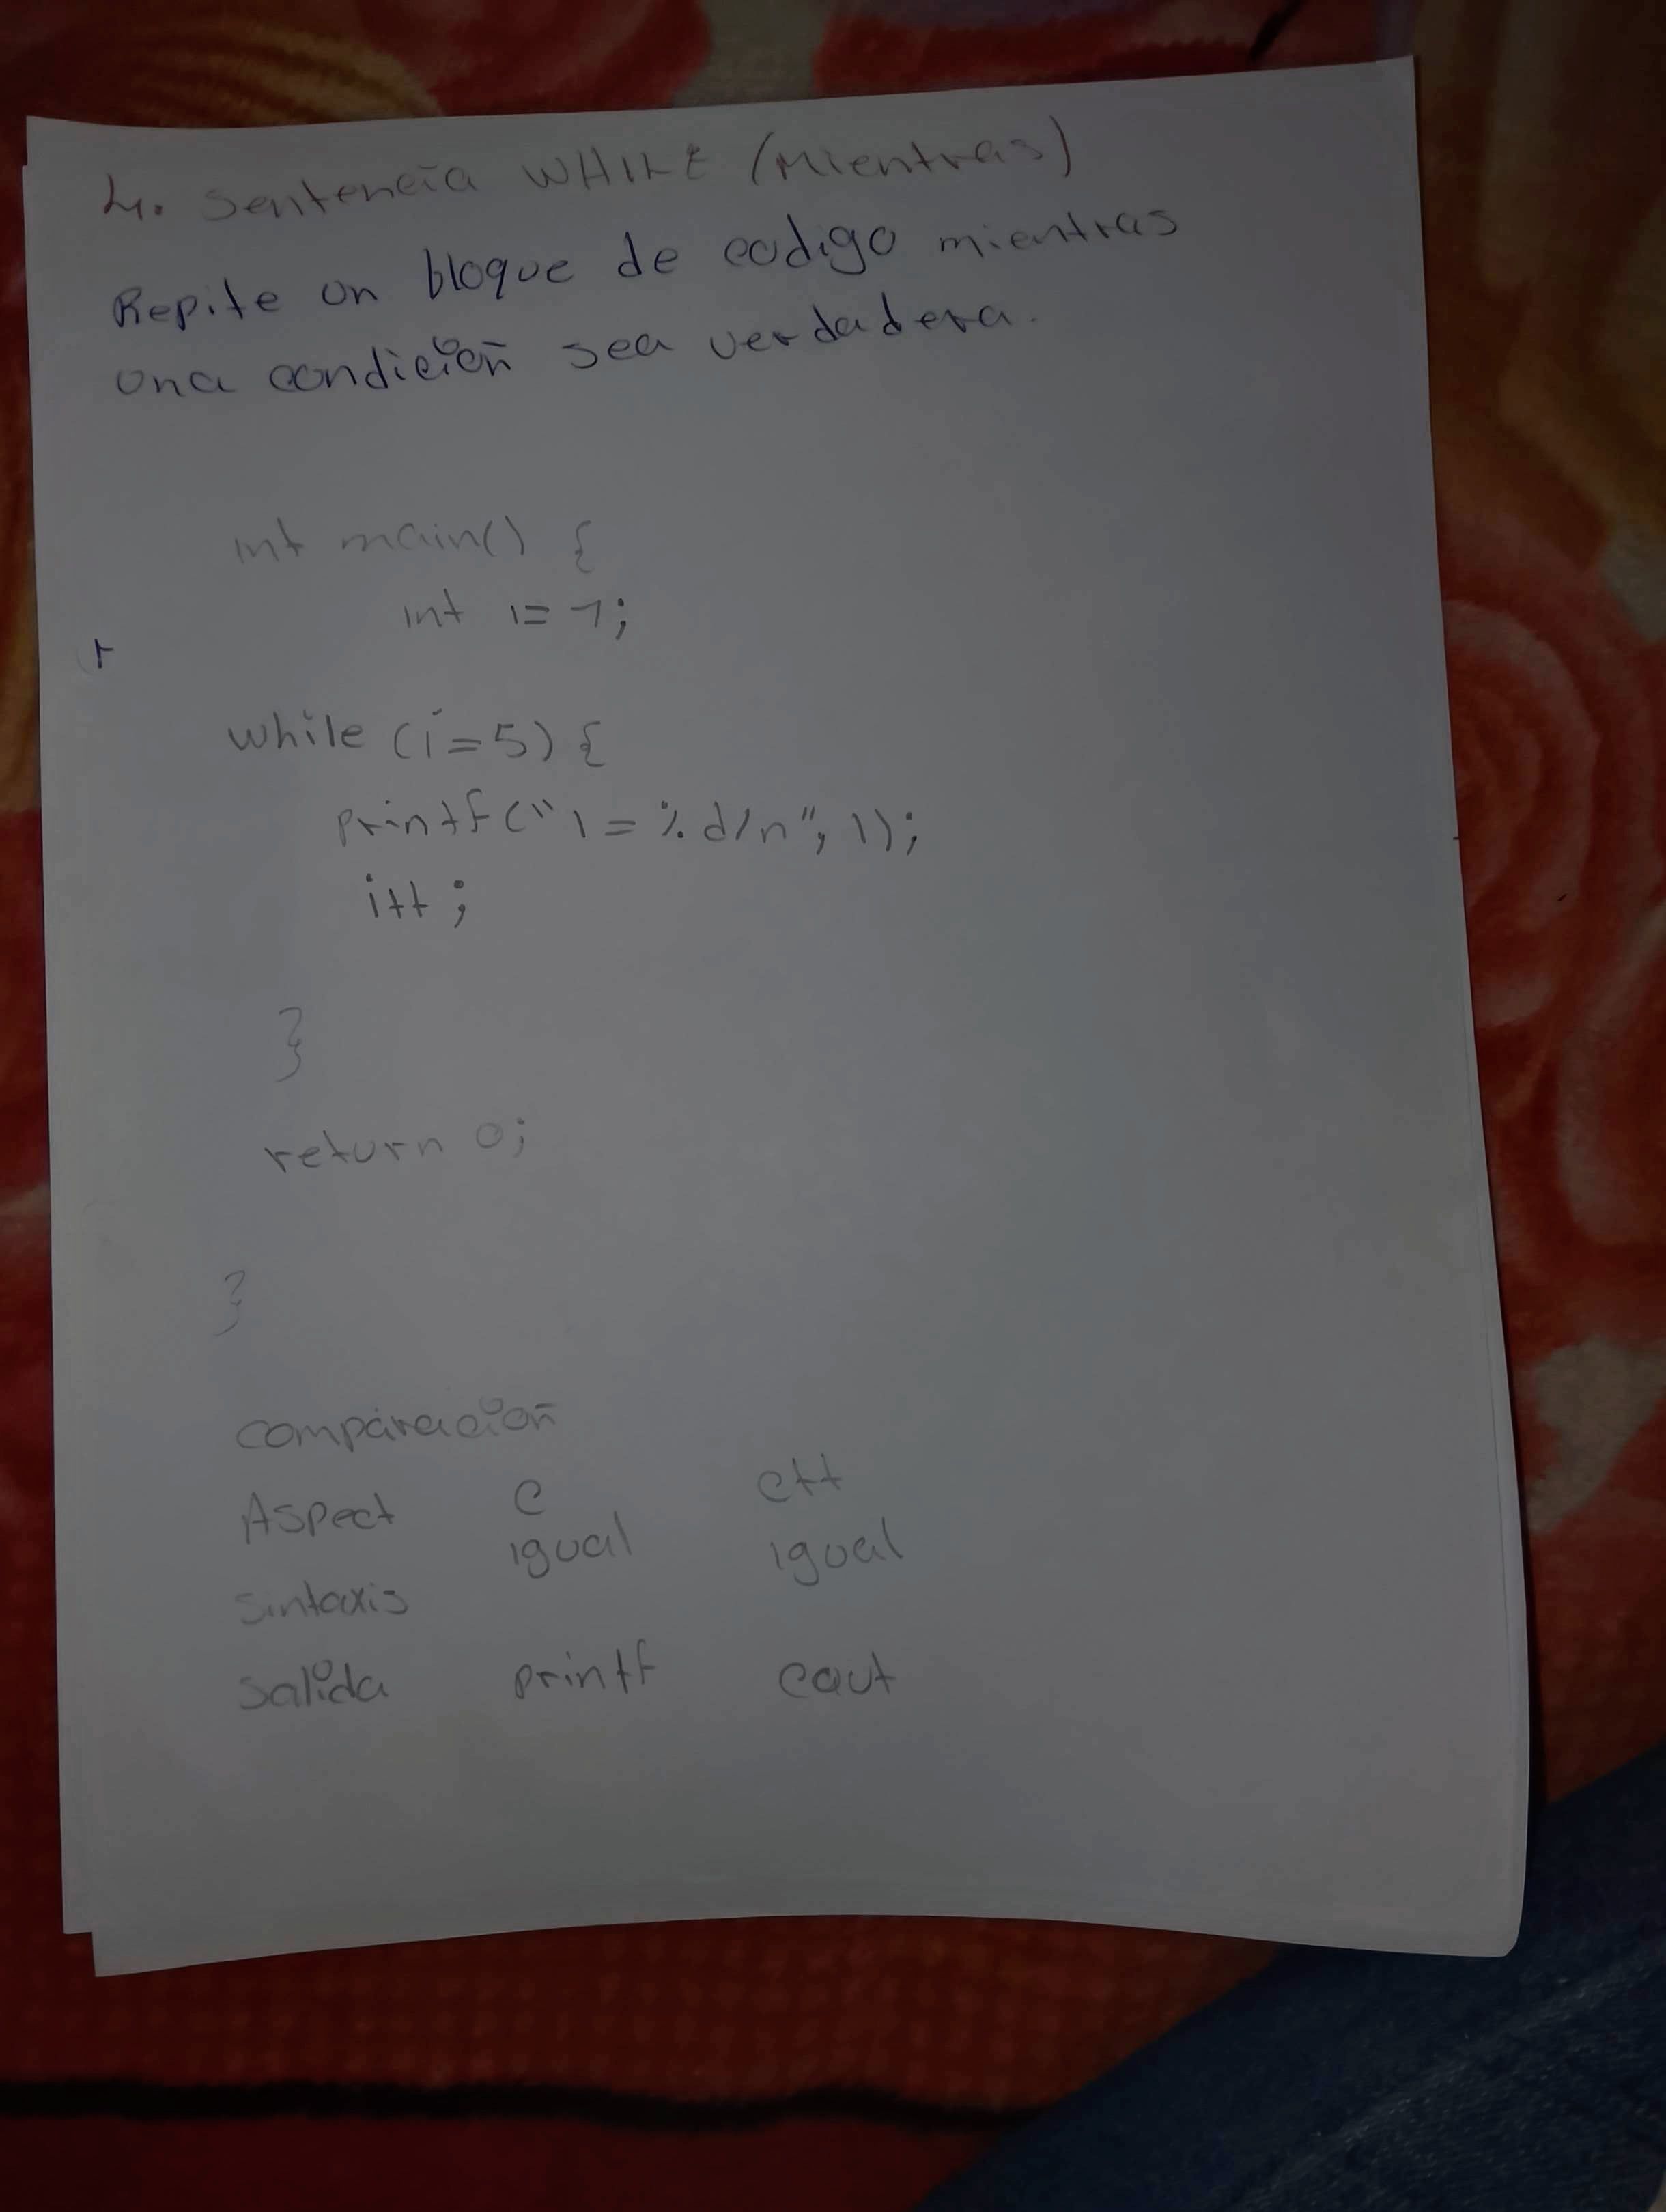 4. Sentencia WHILE (Mientras)
Repite un bloque de codigo mientras
una condición sea verdadera.
int main() {
int i= 1;
while (i=5) {
printf("1=%d/n", 1);
i++;
}
return 0;
}
comparación
Aspect C C++
igual igual
sintaxis
salida printf caut